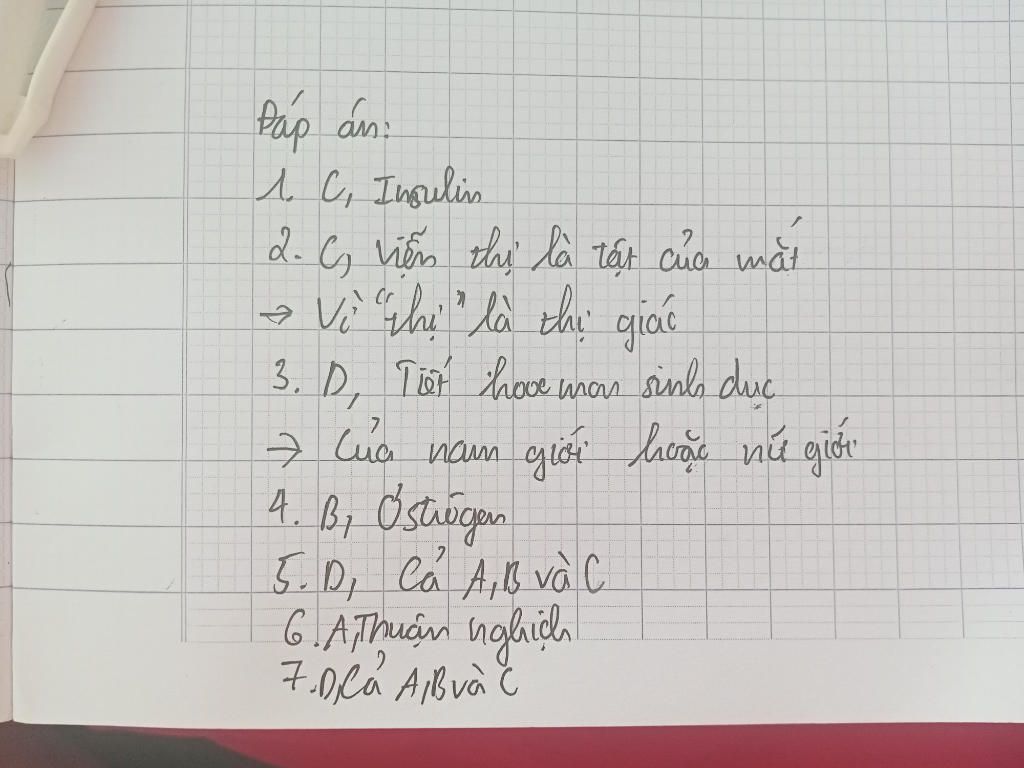 Đáp án:
1. C, Insulin
2. C, Viễn thị là tật của mắt
→ Vì "thị" là thị giác
3. D, Tiết hoocmon sinh dục
→ Của nam giới hoặc nữ giới
4. B, Ơstrôgen
5. D, Cả A, B và C
6. A, Thuận nghịch
7. D, Cả A, B và C